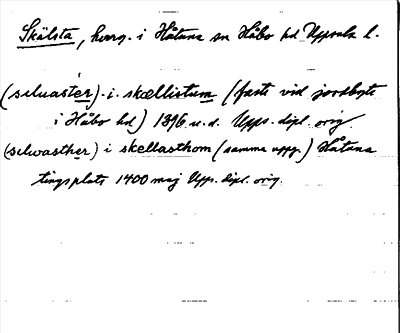 Skälsta, herrg. i Håtuna sn Håbo hd Uppsala l.
(siluaster) i skællistum (faste vid jordbyte
i Håbo hd) 1396 u.d. Upps. dipl. orig.
(silwasther) i skellasthom (samma uppg.) Håtuna
tingsplats 1400 maj Upps. dipl. orig.